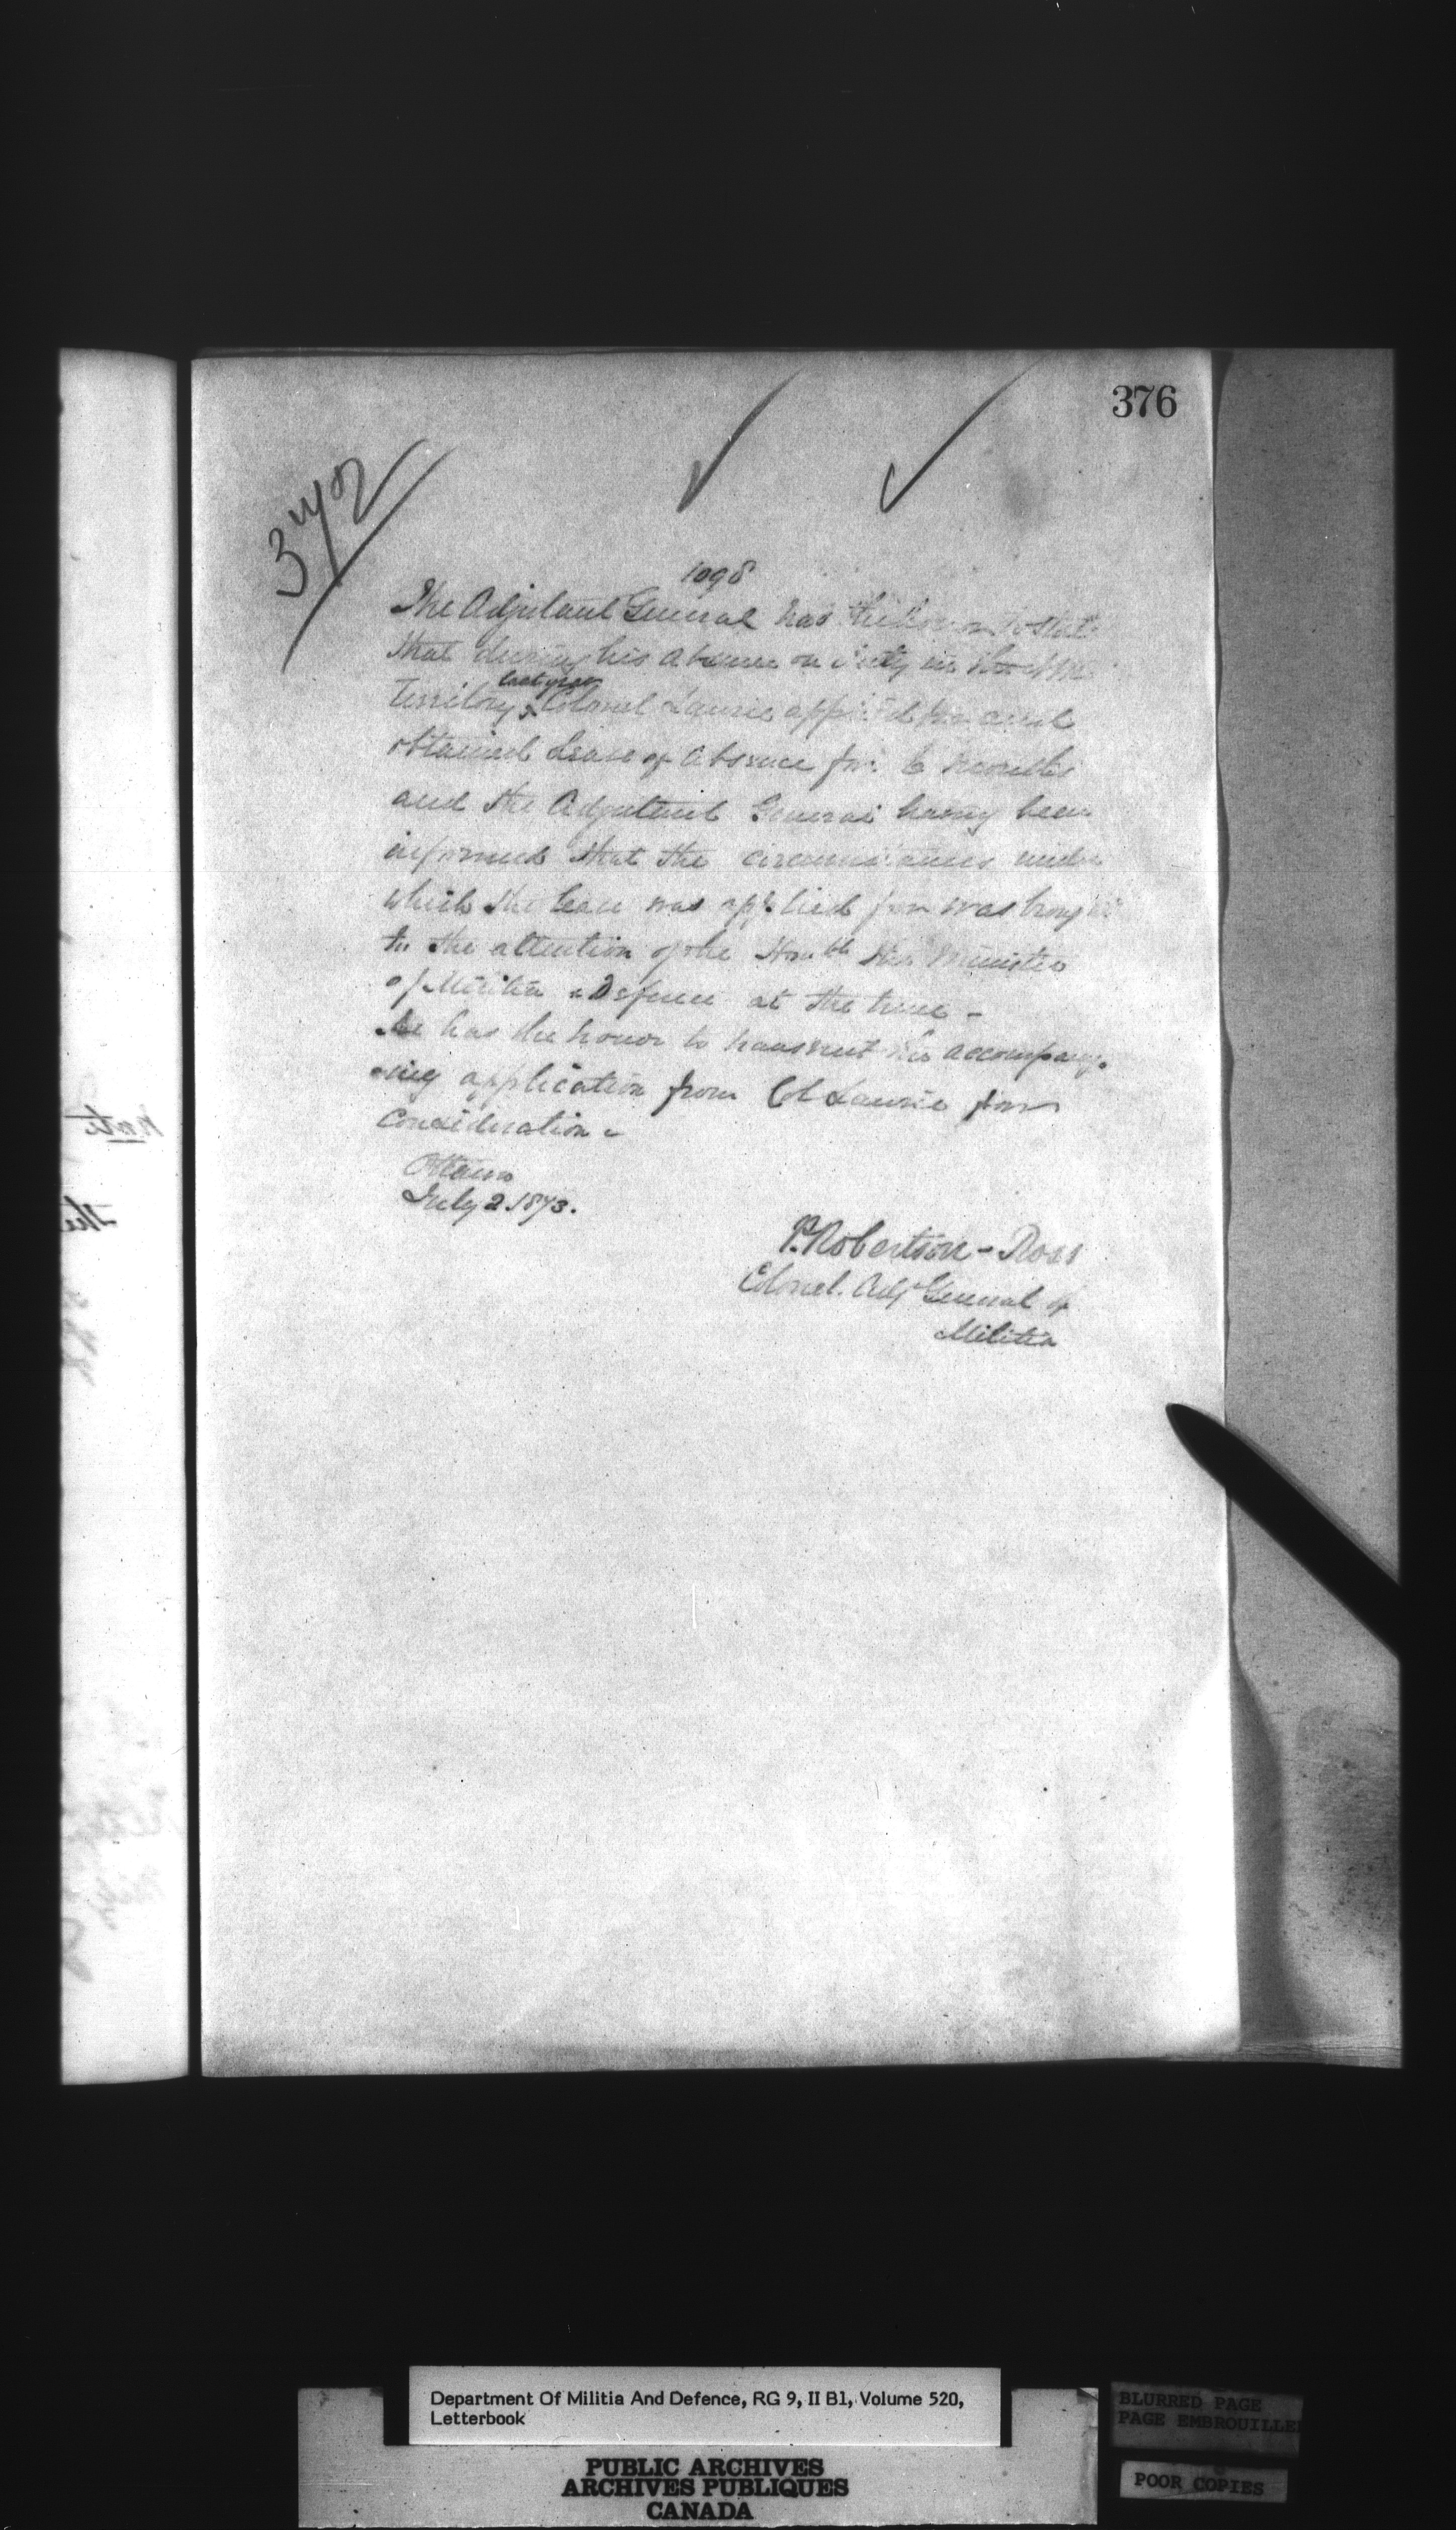 376
372
1098
The Adjutant General has the honor to state
that during his absence on duty in the N.W.
last year
Territory Colonel Laurie applied for and
obtained Leave of Absence for 6 months
and the Adjutant General having been
informed that the circumstances under
which the leave was applied for was brought
to the attention of the Honble the Minister
of Militia & Defence at the time -
He has the honor to transmit the accompany-
-ing application from Col Laurie for
Consideration -
Ottawa
July 2. 1873.
P. Robertson-Ross
Colonel. Adjt General of
Militia
Department Of Militia And Defence, RG 9, II B1, Volume 520,
Letterbook
PUBLIC ARCHIVES
ARCHIVES PUBLIQUES
CANADA
BLURRED PAGE
PAGE EMBROUILLE
POOR COPIES